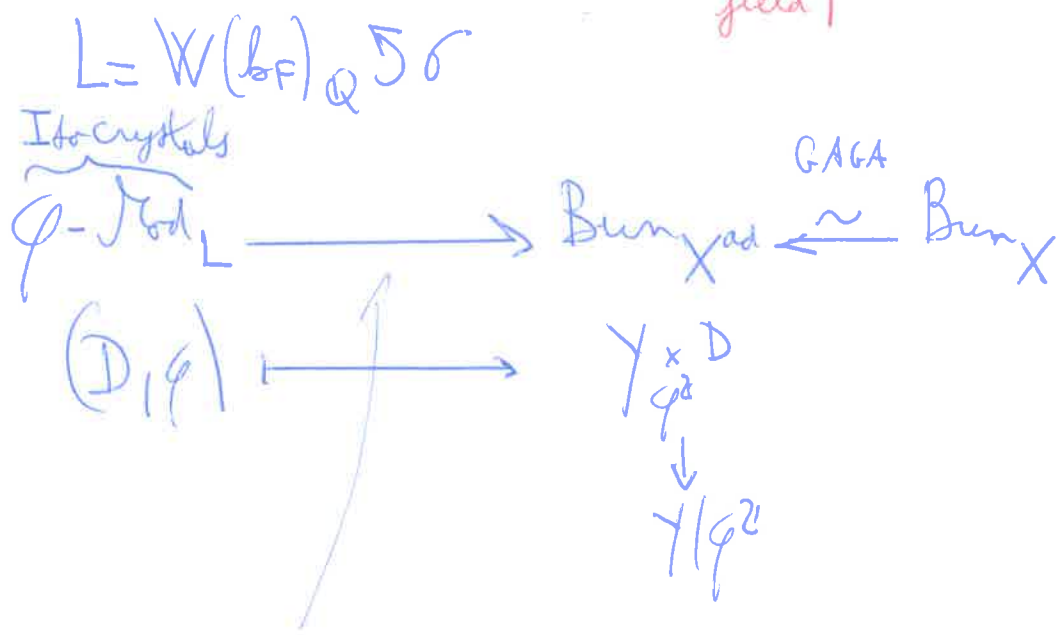 field
L = W(k_F)_Q ↺ σ
Isocrystals
GAGA
φ-Mod_L ⟶ Bun_{X^{ad}} ⟵∼ Bun_X
(D, φ) ⟼ Y ×_{φ^ℤ} D
↓
Y/φ^ℤ